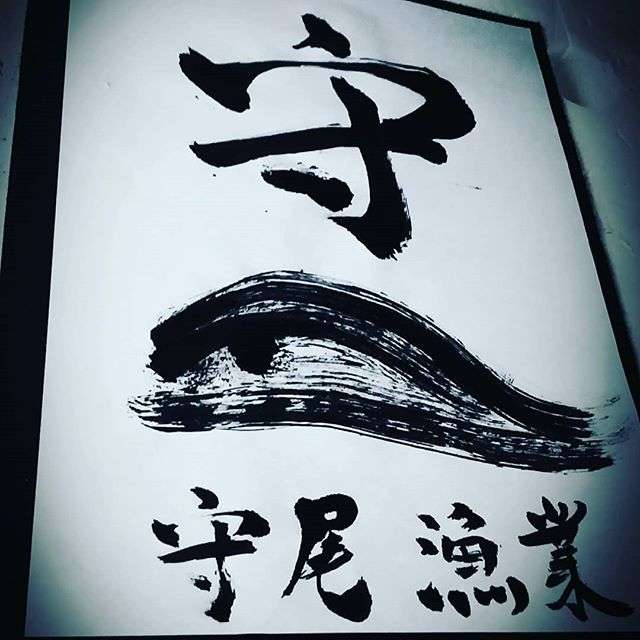 守
守尾漁業